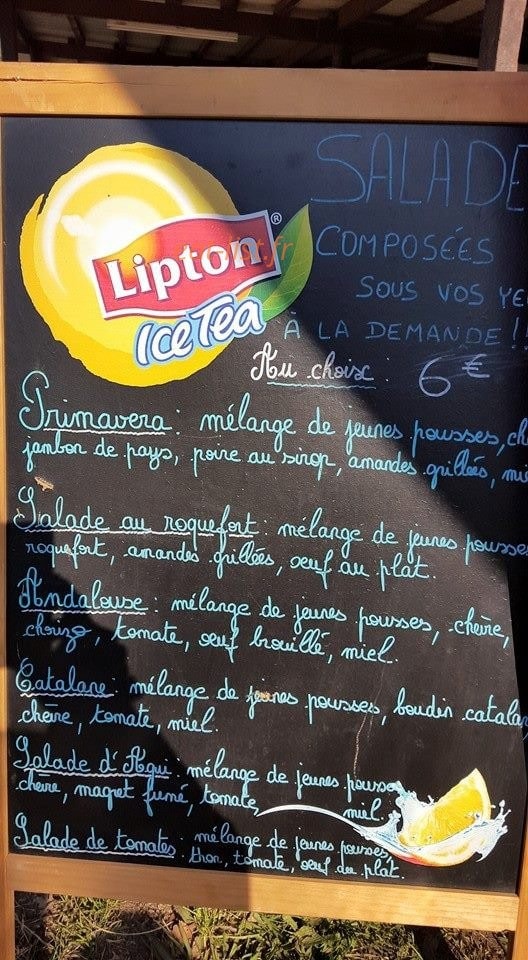 SALADE
COMPOSÉES
SOUS VOS YE
À LA DEMANDE !!
Lipton®
Ice Tea
Au choix : 6€
Primavera : mélange de jeunes pousses, ch
jambon de pays, poire au sirop, amandes grillées, mi
Salade au roquefort : mélange de jeunes pousse
roquefort, amandes grillées, oeuf au plat.
Andalouse : mélange de jeunes pousses, chèvre,
chorizo, tomate, oeuf brouillé, miel.
Catalane : mélange de jeunes pousses, boudin catalan,
chèvre, tomate, miel.
Salade d'Aqui : mélange de jeunes pousse
chèvre, magret fumé, tomate, miel.
Salade de tomates : mélange de jeunes pousses,
thon, tomate, oeuf au plat.